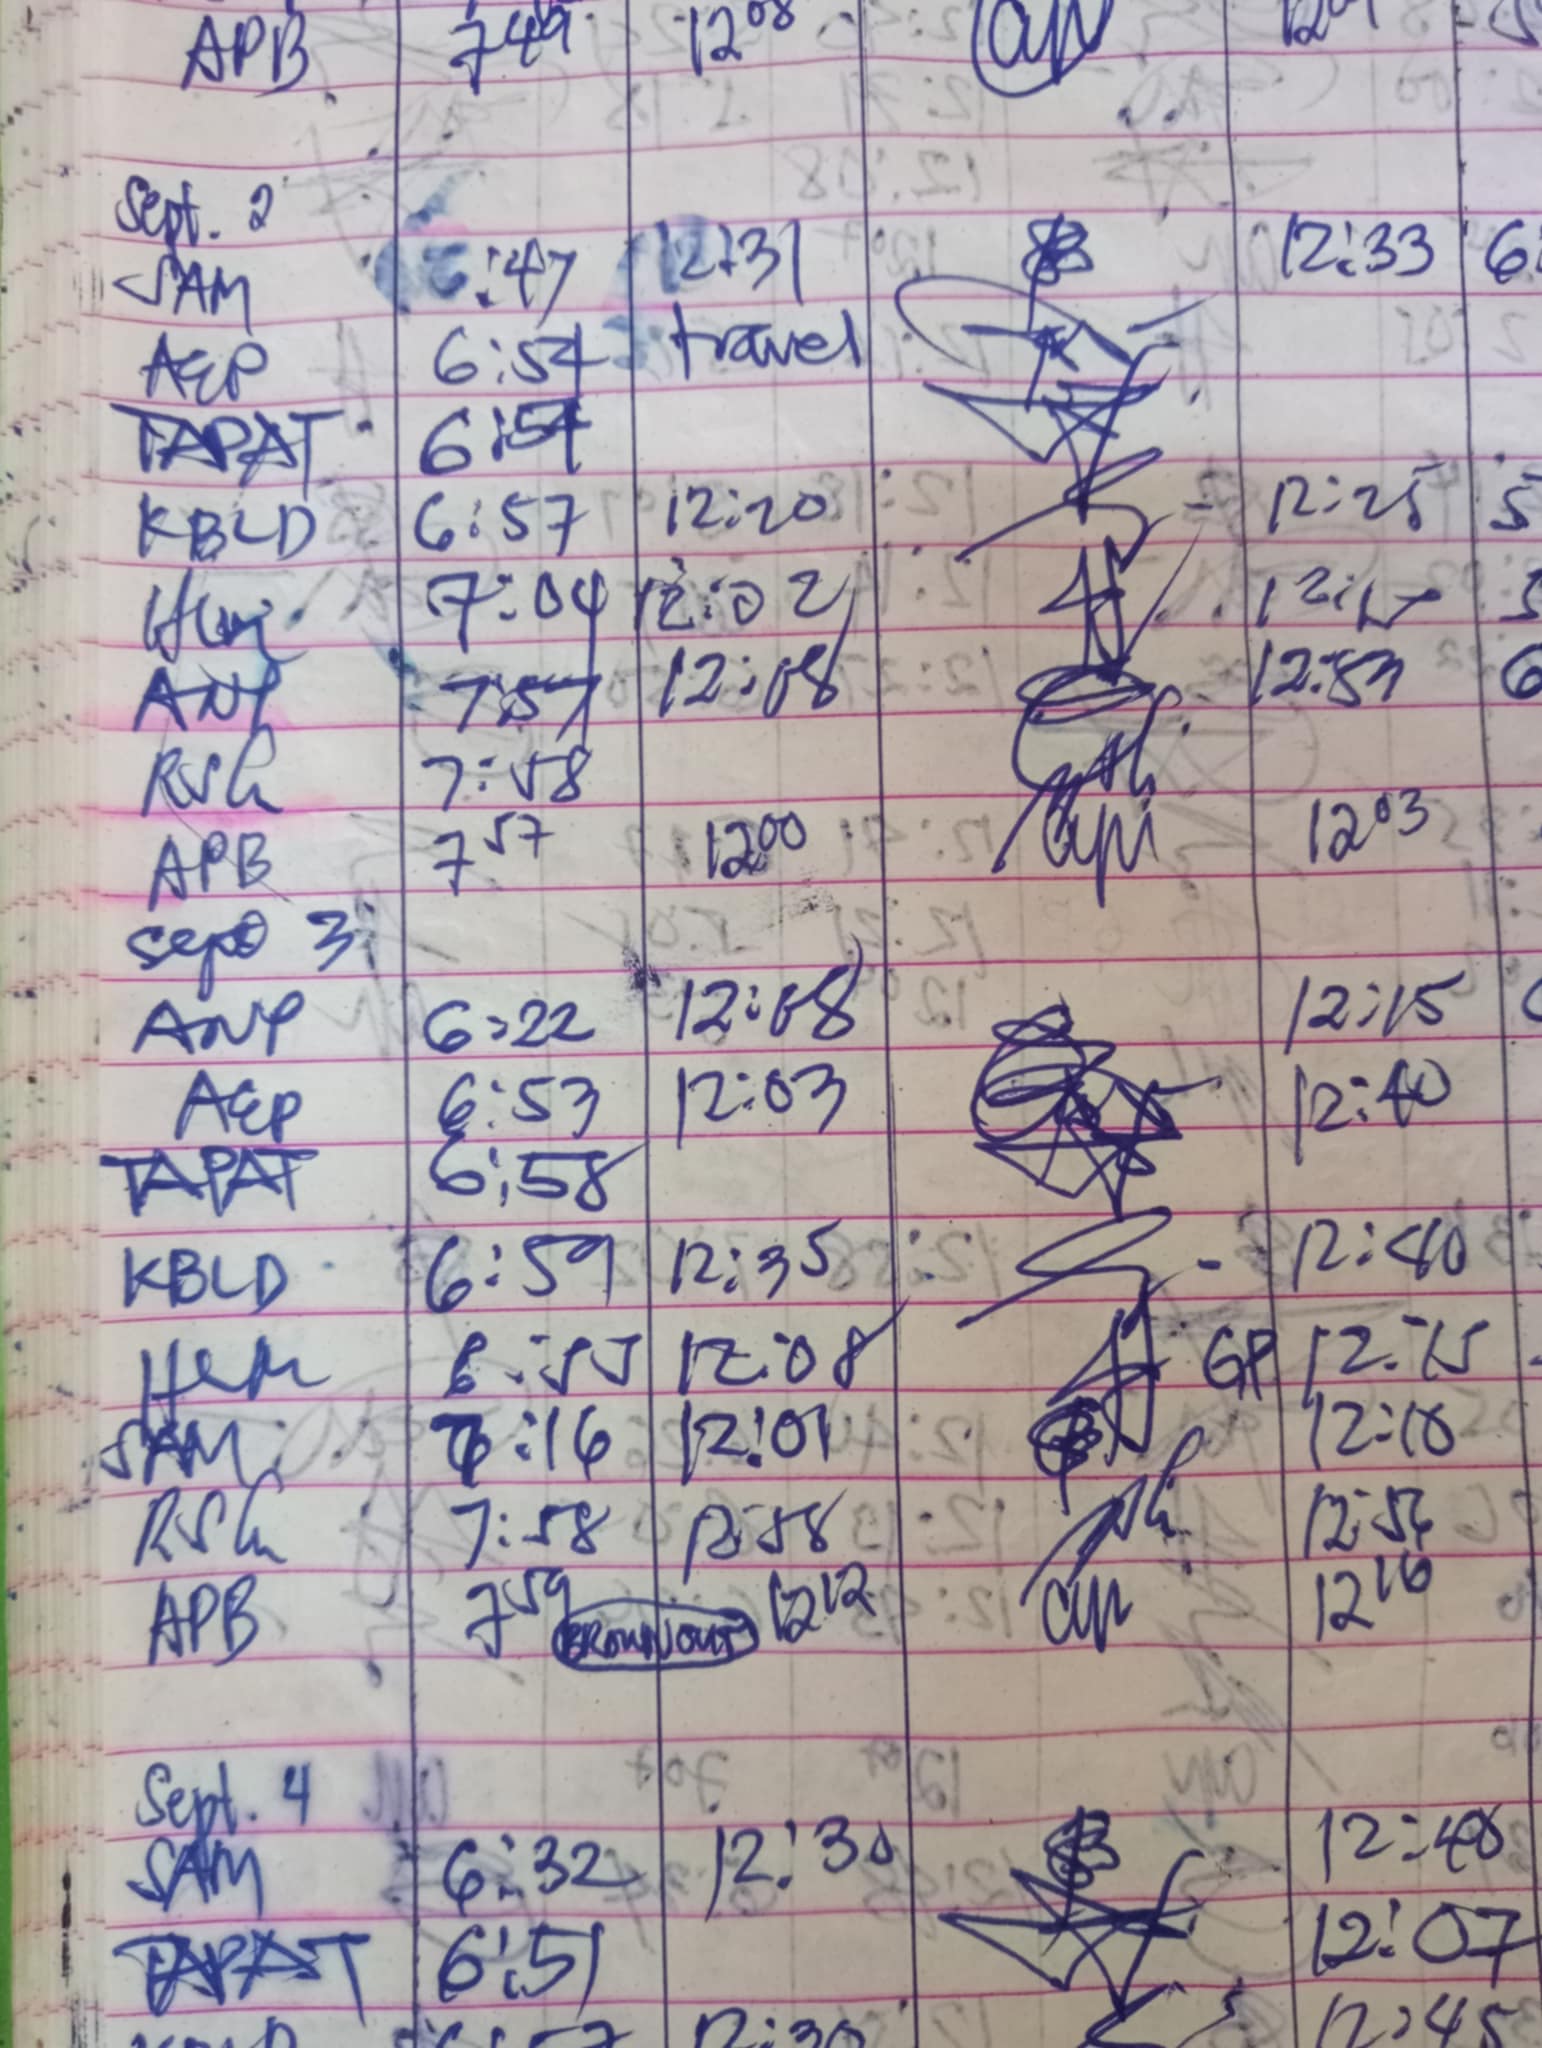 APB 7 49 12 08
Sept. 2
SAM 6:47 12:31 12:33 6:
AEP 6:54 travel
TAPAT 6:54
KBLD 6:57 12:20 12:25 5
7:04 12:02
ANP 7:57 12:08 12:53 6
RSG 7:58
APB 7 57 12 00 12 03
Sept 3
ANP 6:22 12:08 12:15
AEP 6:53 12:03 12:40
TAPAT 6:58
KBLD 6:59 12:35 12:40
HLM 12:08 GP 12:15
SAM :16 12:01 12:10
RSG 7:58 12:58 12:56
APB 7 59 BROWNOUT 12 12 12 16
Sept. 4
SAM 6:32 12:30 12:40
TAPAT 6:51 12:07
KBLD 6:57 12:30 12:45